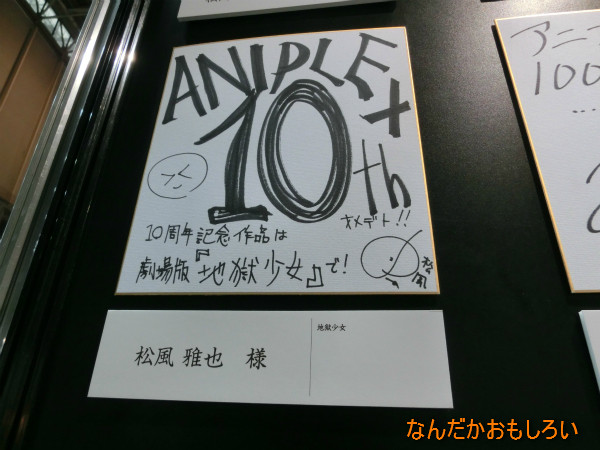 ANIPLEX
10th
オメデト!!
10周年記念作品は
劇場版『地獄少女』で!
松風
松風 雅也 様
地獄少女
アニプ
100
...
なんだかおもしろい